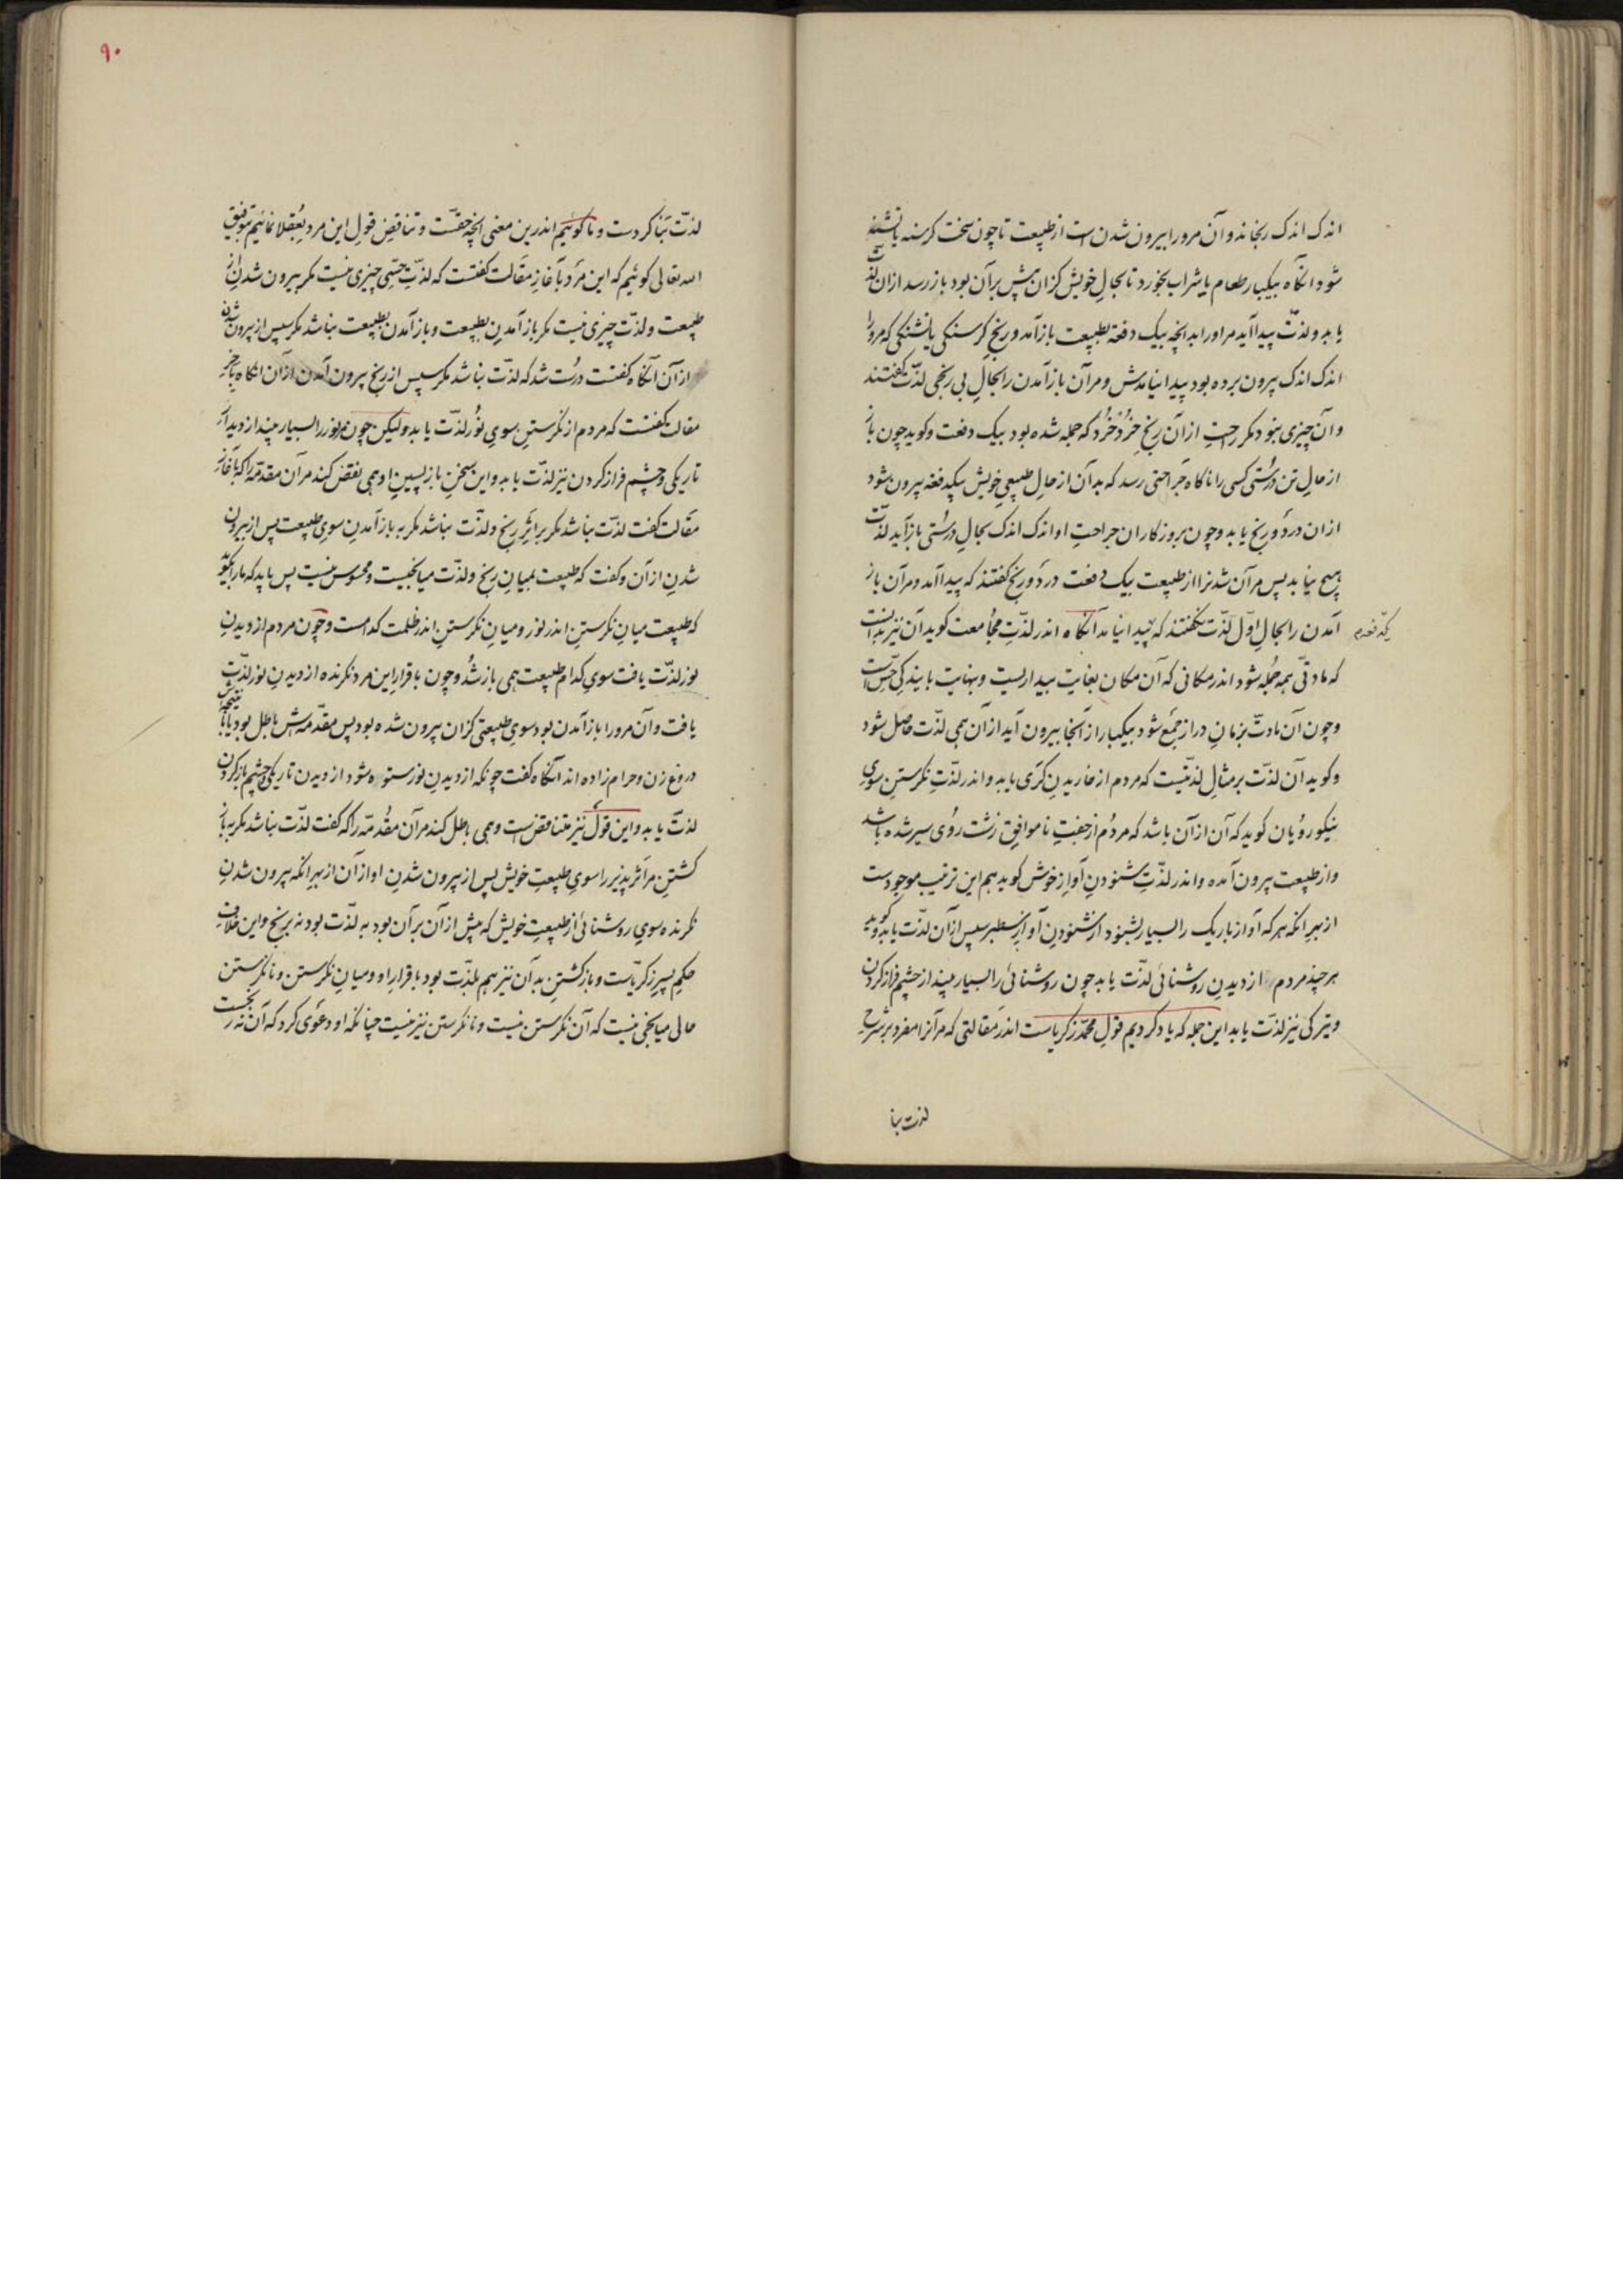 اندک اندک رنجاند و آن مرو را بیرون شدن است از طبیعت تا چون سخت کرسنه یا تشنه
شود انکاه بیکبار طعام یا شراب بخورد تا بحالِ خویش کزان پیش برآن بود باز رسد ازان لذّت
یابد و لذّت پیدا آید مر اورا بدانچه بیک دفعة بطبیعت باز آمد و رنجِ کرسنکی یا تشنکی که مرورا
اندک اندک بیرون برده بود پیدا نیامدش و مرآن باز آمدن را بحالِ بی رنجی لذّت کفتند
و آن چیزی نبود مکر راحتِ ازآن رنجِ خُرْد خُرْد که جمله شده بود بیک دفعت و کوید چون باز
از حالِ تن درُستی کسی را ناکاه جَراحتی رسد که بدآن از حالِ طبیعیِ خویش بیکدفعه بیرون شود
ازان درد و رنج یابد و چون بروزکاران جراحتِ او اندک اندک بحالِ درُستی بازآید لذّت
هیچ نیابد پس مرآن شدنرا از طبیعت بیک دفعت درد و رنج کفتند که پیدا آمد و مرآن باز
آمدن را بحالِ اوّل لذّت نکفتند که پیدا نیامد آنکاه اندر لذّتِ مجُامعت کوید آن نیز بدانست
که مادتی همه جُمله شود اندر مکانی که آن مکان بغایت بیداریست و بنهایت با بیندکیِ حِسّ است
و چون آن مادت بزمانِ دراز جمع شود بیکبار از آنجا بیرون آید ازآن همی لذّت حاصل شود
و کوید آن لذّت برمثالِ لذتیست که مردم از خاریدنِ کَری یابد و اندر لذّتِ نکرستن سویِ
نیکورویان کوید که آن ازآن باشد که مردُم از جفتِ ناموافقِ زشت روُی سیر شده باشد
و از طبیعت بیرون آمده و اندر لذّتِ شنودنِ آوازِ خوش کوید هم این ترتیب موجودست
از بهرِ انکه هرکه آواز باریک را بسیار بشنود از شنودنِ آوازِ سطبر سپس ازآن لذّت یابد و کوید
هرچند مردم از دیدنِ روشنائی لذّت یابد چون روشنائی را بسیار بیند از چشم فراز کردن
و تیرکی نیز لذّت یابد این جمله که یاد کردیم قولِ محمّد زکریاست اندر مقالتی که مرآنرا مفرد بر شرحِ
لذت بنا
لذّت بَنا کردست و ما کوئیم اندرین معنی انچه حقّست و تناقضِ قولِ این مرد بعُقلا نمائیم بتوفیقِ
الله تعالی کوئیم که این مرد بآغازِ مقالت کفتست که لذّتِ حِسّی چیزی نیست مکر بیرون شدنِ از
طبیعت و لذّت چیزی نیست مکر باز آمدنِ بطبیعت و باز آمدنِ بطبیعت نباشد مکر سپس از بیرون شدن
ازآن آنکاه کفتست درُست شد که لذّت نباشد مکر سپس از رنج بیرون آمدن ازآن انکاه بآخرِ
مقالت کفتست که مردم از نکرستن سویِ نُور لذّت یابد ولیکن چون مر نور را بسیار بیند از دیدار
تاریکی و چشم فراز کردن نیز لذّت یابد و این سخنِ بازپسینِ او همی نقض کند مرآن مقدمه را که بآغازِ
مقالت کفت لذّت نباشد مکر براثرِ رنج و لذّت نباشد مکر به باز آمدنِ سویِ طبیعت پس از بیرون
شدنِ ازآن و کفت که طبیعت بمیانِ رنج و لذّت میانجیست و محسوس نیست پس باید که مارا بکوید
که طبیعت میانِ نکرستنِ اندر نور و میانِ نکرستنِ اندر ظلمت کدامست و چون مردم از دیدنِ
نور لذّت یافت سویِ کدام طبیعت همی باز شُد و چون باقرارِ این مرد نکرنده از دیدنِ نور لذّت
یافت و آن مرورا باز آمدن نبود سویِ طبیعتی کزان بیرون شده بود پس مقدّمه‌ش باطل بود
دروغ زن و حرام زاده اند آنکاه کفت چونکه از دیدنِ نور ستوه شود از دیدن تاریکی و چشم باز کردن
لذّت یابد و این قول نیز متناقض است و همی باطل کند مرآن مقُدّمه را که کفت لذّت نباشد مکر به باز
کشتنِ مر اثرپذیر را سویِ طبیعتِ خویش پس از بیرون شدنِ او ازآن از بهرِ انکه بیرون شدنِ
نکرنده سویِ روشنائی از طبیعتِ خویش که پیش ازآن برآن بود به لذّت بود نه برنج و این خلافِ
حکمِ پسرِ زکریّاست و باز کشتنِ بدآن نیز هم بلذّت بود باقرارِ او و میانِ نکرستن و نانکرستن
حالی میانجی نیست که آن نکرستن نیست و نانکرستن نیز نیست چنانکه او دعوی کرد که آن نه رنجست